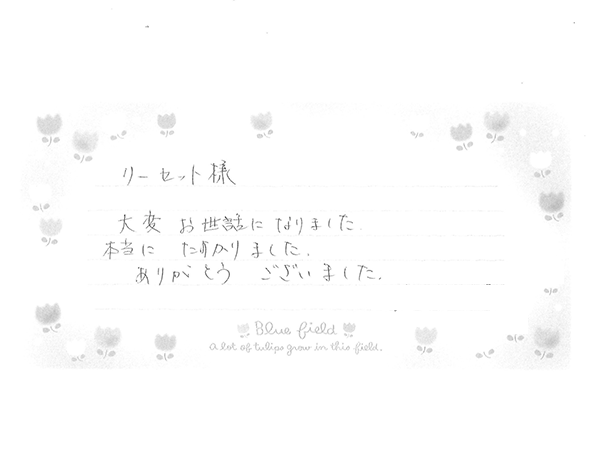 リーセット様
大変 お世話になりました.
本当に たすかりました.
ありがとう ございました.
Blue field
A lot of tulips grow in this field.